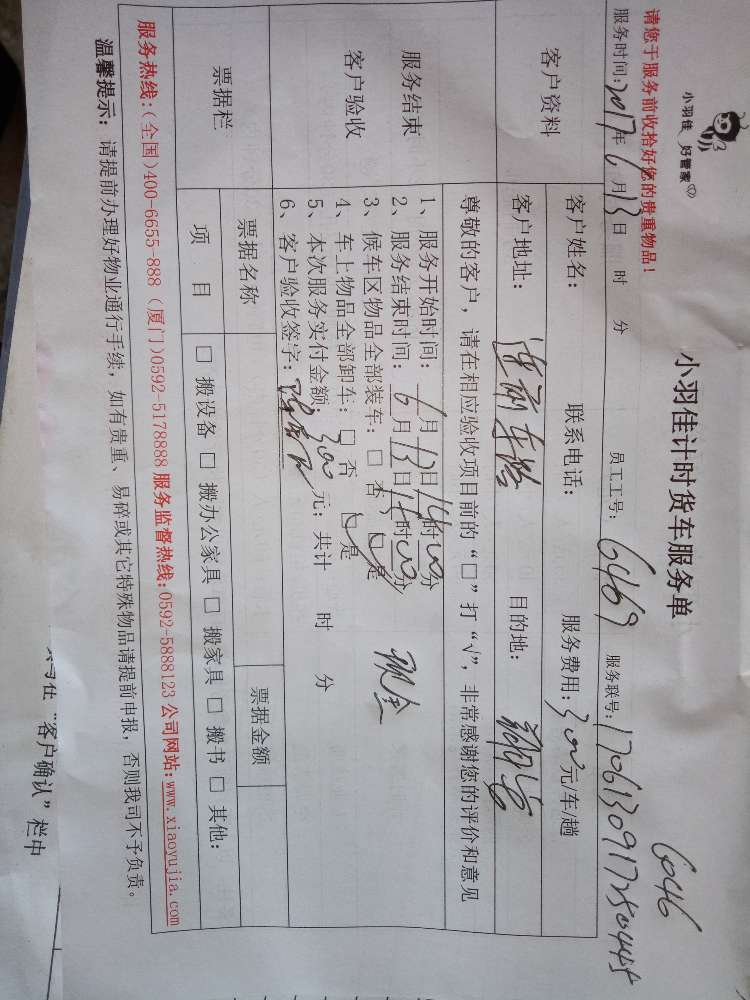 小羽佳 好管家
小羽佳计时货车服务单
6046
请您于服务前收拾好您的贵重物品！
服务时间:2017年6月13日 时 分 员工工号: 6469 服务联号:
客户资料
客户姓名: 联系电话: 服务费用: 300元/车/趟
客户地址: 目的地:
服务结束
客户验收
尊敬的客户，请在相应验收项目前的“□”打“√”，非常感谢您的评价和意见
1、服务开始时间: 6月13日14时00分
2、服务结束时间: 6月13日15时00分 现金
3、候车区物品全部装车: □ 否 □ 是
4、车上物品全部卸车: □ 否 □ 是
5、本次服务实付金额 300 元; 共计 时 分
6、客户验收签字:
票据栏
票据名称 票据金额
项 目 □ 搬设备 □ 搬办公家具 □ 搬家具 □ 搬书 □ 其他:
服务热线:(全国)400-6655-888 (厦门)0592-5178888 服务监督热线:0592-5888123 公司网站:www.xiaoyujia.com
温馨提示: 请提前办理好物业通行手续，如有贵重、易碎或其它特殊物品请提前申报，否则我司不予负责。
“客户确认”栏中